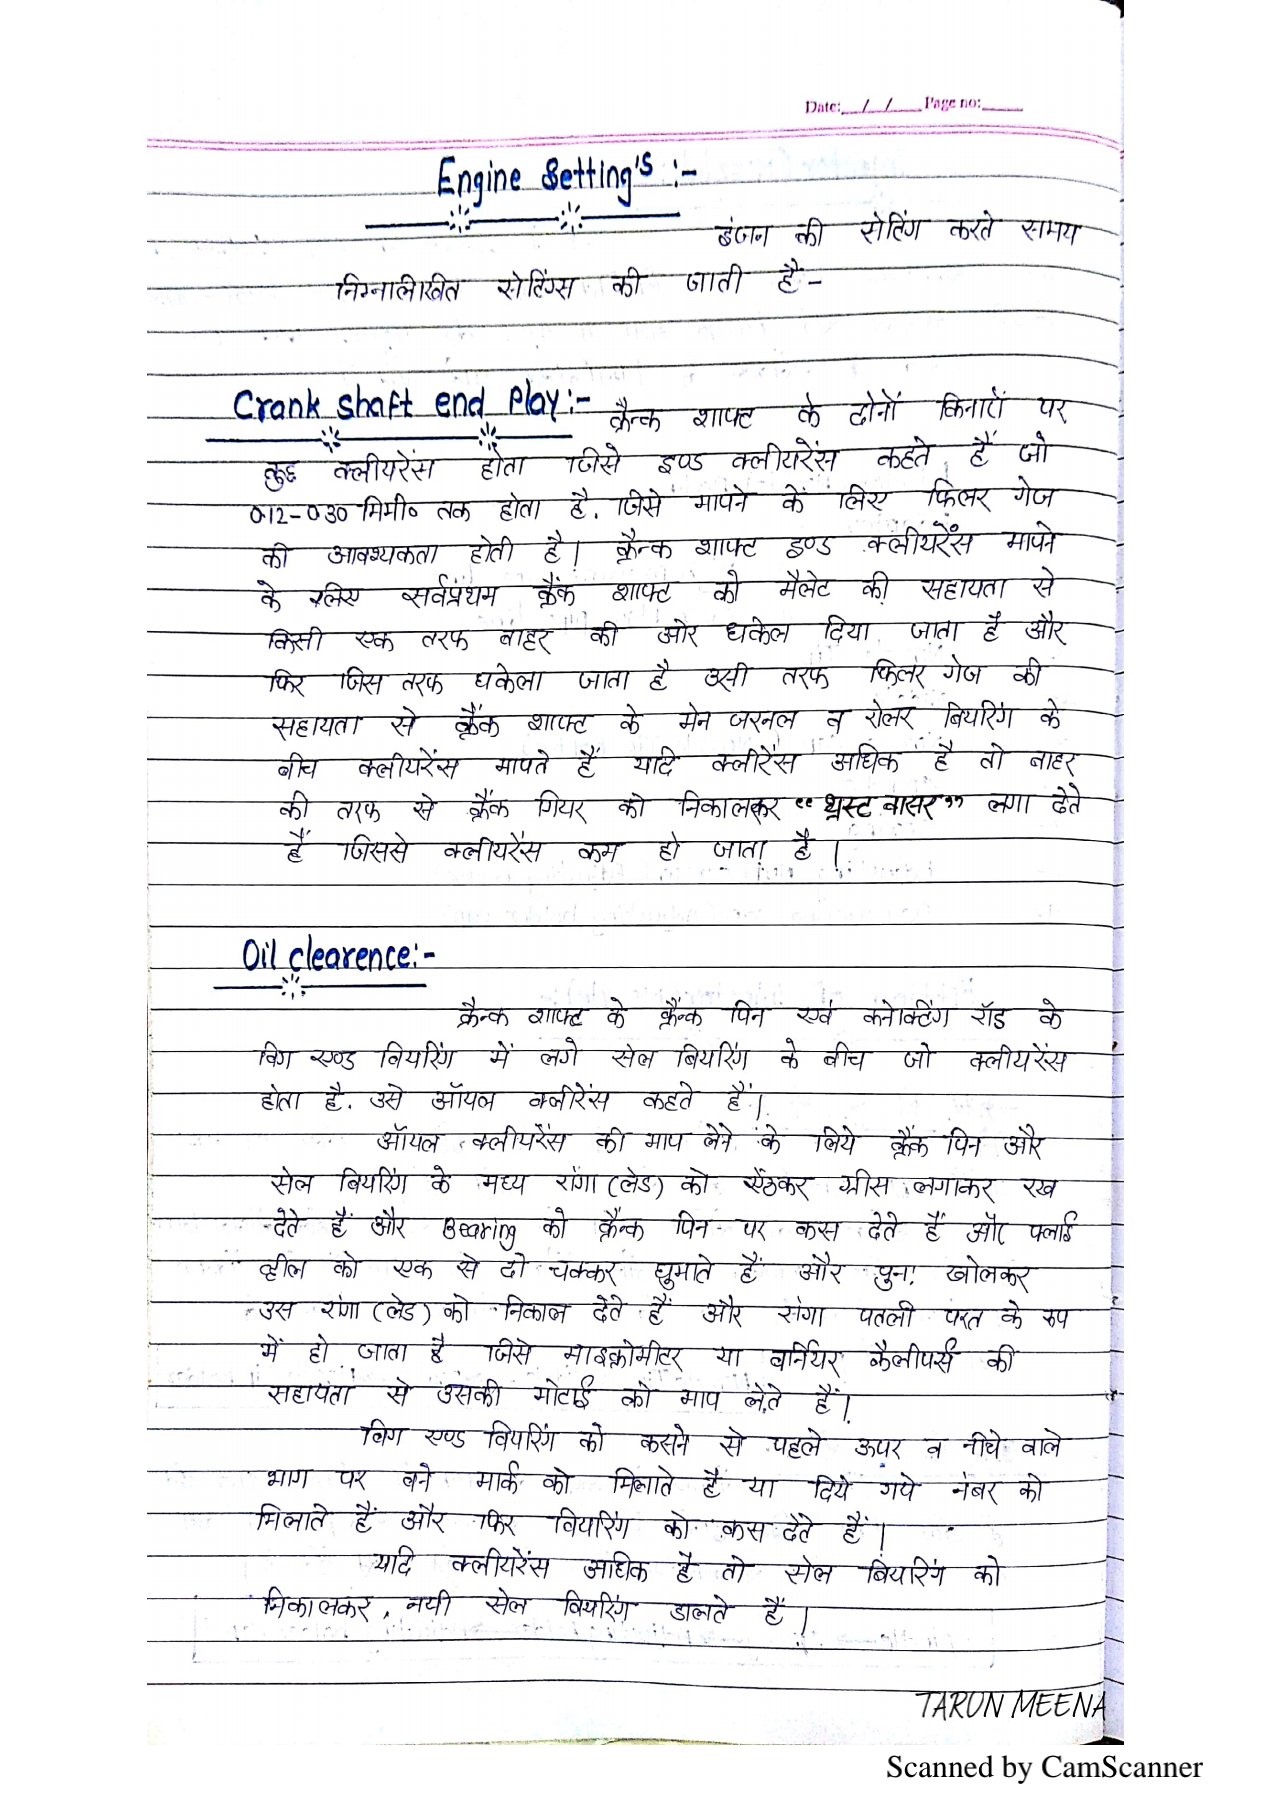 Date: / / Page no:
Engine Setting's :-
इंजन की सेटिंग करते समय
निम्नालिखित सेटिंग्स की जाती है -
Crank shaft end Play:- क्रैन्क शाफ्ट के दोनों किनारों पर
कुछ क्लीयरेंस होता जिसे इण्ड क्लीयरेंस कहते हैं जो
0.12-0.30 मिमी० तक होता है. जिसे मापने के लिए फिलर गेज
की आवश्यकता होती है। क्रैन्क शाफ्ट इण्ड क्लीयरेंस मापने
के लिए सर्वप्रथम क्रैंक शाफ्ट को मैलेट की सहायता से
किसी एक तरफ बाहर की ओर धकेल दिया जाता है और
फिर जिस तरफ धकेला जाता है उसी तरफ फिलर गेज की
सहायता से क्रैंक शाफ्ट के मेन जरनल व रोलर बियरिंग के
बीच क्लीयरेंस मापते हैं यदि क्लीरेंस अधिक है तो बाहर
की तरफ से क्रैंक गियर को निकालकर “थ्रस्ट वासर” लगा देते
हैं जिससे क्लीयरेंस कम हो जाता है।
Oil clearence:-
क्रैन्क शाफ्ट के क्रैन्क पिन एवं कनेक्टिंग रॉड के
बिग एण्ड बियरिंग में लगे सेल बियरिंग के बीच जो क्लीयरेंस
होता है. उसे ऑयल क्लीरेंस कहते हैं।
ऑयल क्लीयरेंस की माप लेने के लिये क्रैंक पिन और
सेल बियरिंग के मध्य रांगा (लेड) को ऐंठकर ग्रीस लगाकर रख
देते हैं और Bearing को क्रैन्क पिन पर कस देते हैं और फ्लाई
व्हील को एक से दो चक्कर घुमाते हैं और पुनः खोलकर
उस रांगा (लेड) को निकाल देते हैं और रांगा पतली परत के रुप
में हो जाता है जिसे माइक्रोमीटर या वर्नियर कैलीपर्स की
सहायता से उसकी मोटाई को माप लेते हैं।
बिग एण्ड बियरिंग को कसने से पहले ऊपर व नीचे वाले
भाग पर बने मार्क को मिलाते है या दिये गये नंबर को
मिलाते हैं और फिर बियरिंग को कस देते हैं।
यदि क्लीयरेंस अधिक है तो सेल बियरिंग को
निकालकर, नयी सेल बियरिंग डालते हैं।
TARUN MEENA
Scanned by CamScanner